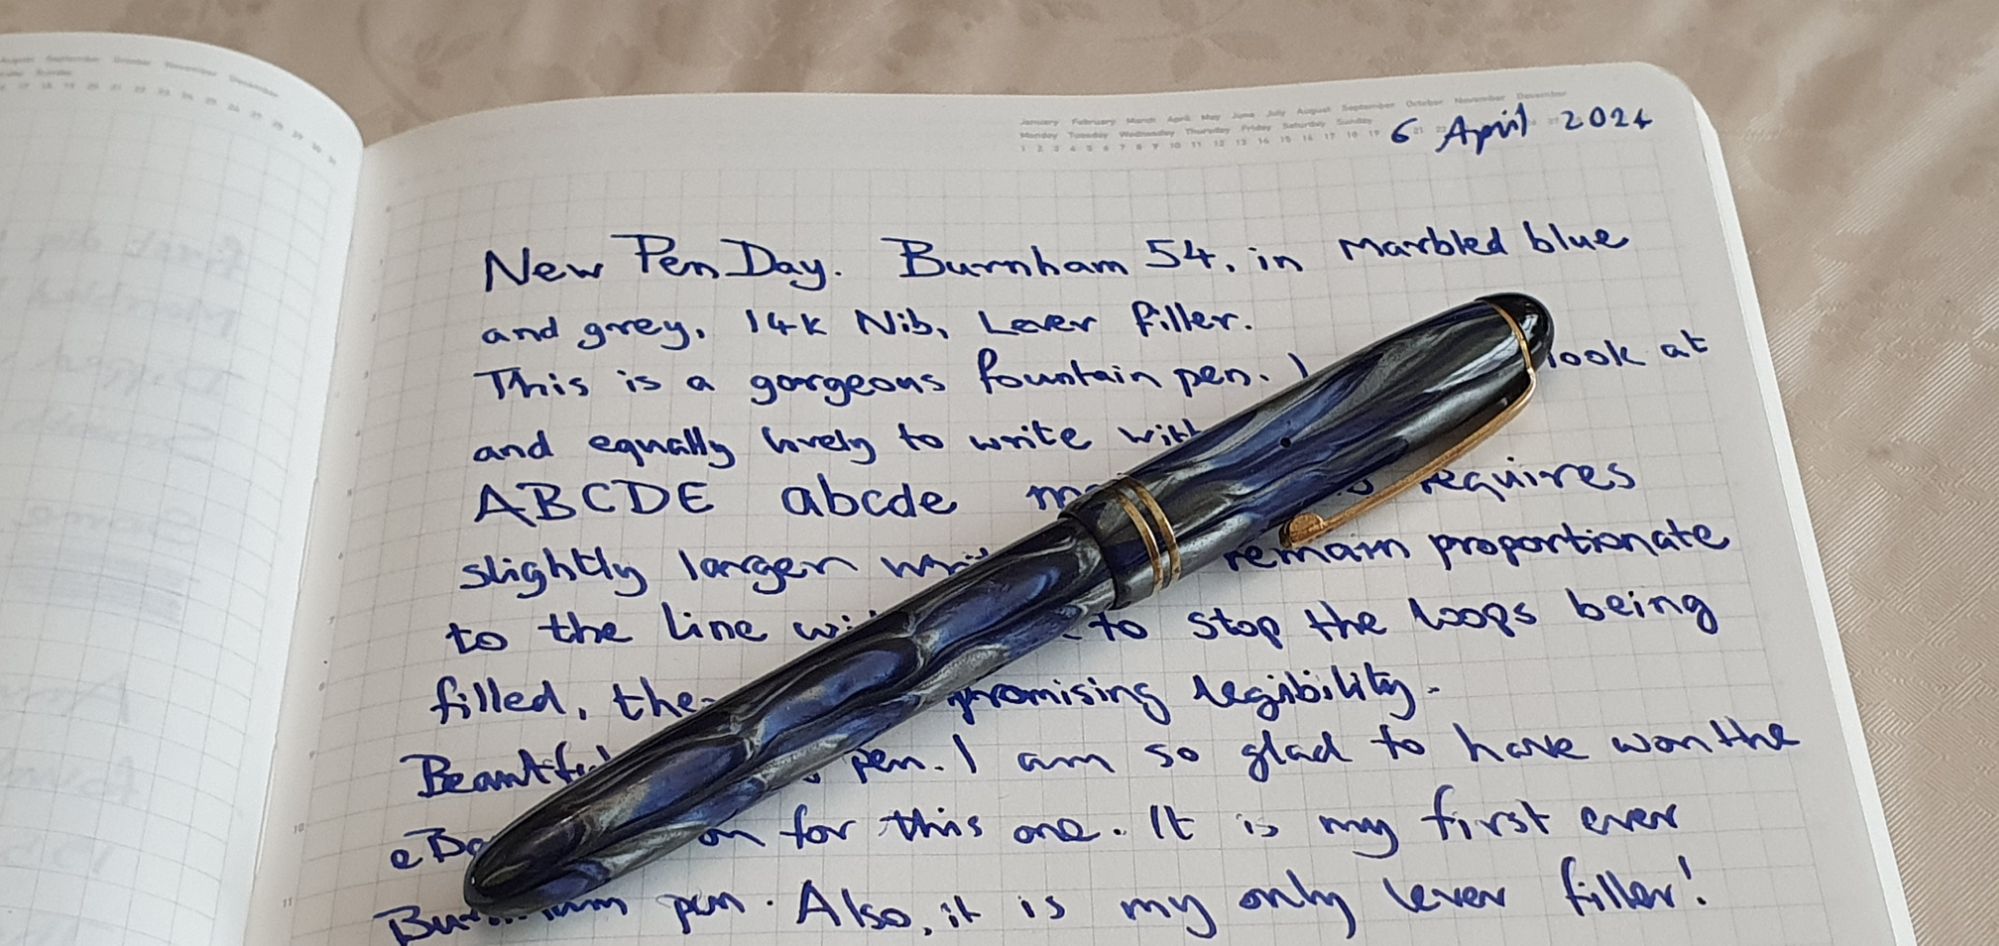 January February March April May June July August September October November December
Monday Tuesday Wednesday Thursday Friday Saturday Sunday
6 April 2024
New Pen Day. Burnham 54, in Marbled blue
and grey, 14k Nib, Lever filler.
This is a gorgeous fountain pen. look at
and equally lovely to write with
ABCDE abcde requires
slightly larger remain proportionate
to the line to stop the loops being
filled, promising legibility.
Beautiful pen. I am so glad to have won the
for this one. It is my first ever
Burnham pen. Also, it is my only lever filler!